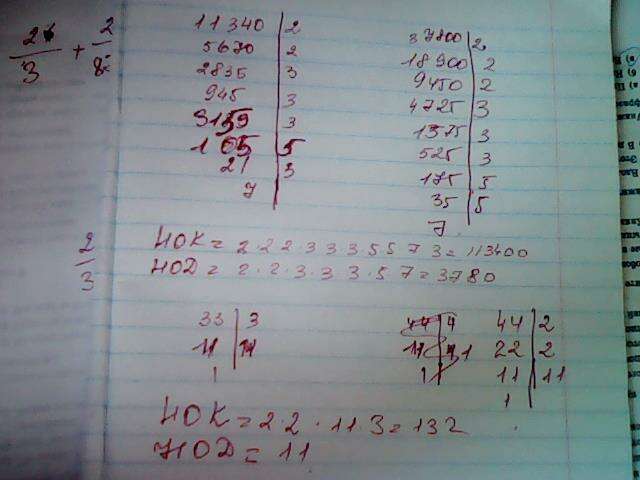 2
3
+
2
11340 | 2
5670 | 2
2835 | 3
945 | 3
3
105 | 5
21 | 3
7
37800 | 2
18900 | 2
9450 | 2
4725 | 3
1575 | 3
525 | 3
175 | 5
35 | 5
7
2
3
НОК = 2·2·2·3·3·3·5·5·7·3 = 113400
НОD = 2·2·3·3·3·5·7 = 3780
33 | 3
11 | 11
1
44 | 2
22 | 2
11 | 11
1
НОК = 2·2·11·3 = 132
НОD = 11